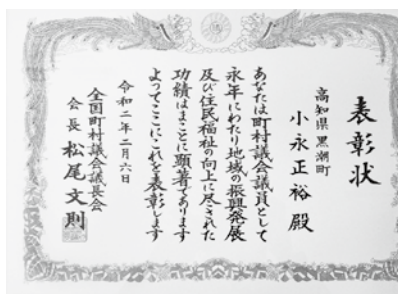 表彰状
高知県黒潮町
小永正裕 殿
あなたは町村議会議員として
永年にわたり地域の振興発展
及び住民福祉の向上に尽された
功績はまことに顕著であります
よってここにこれを表彰します
令和二年二月六日
全国町村議会議長会
会長 松尾文則